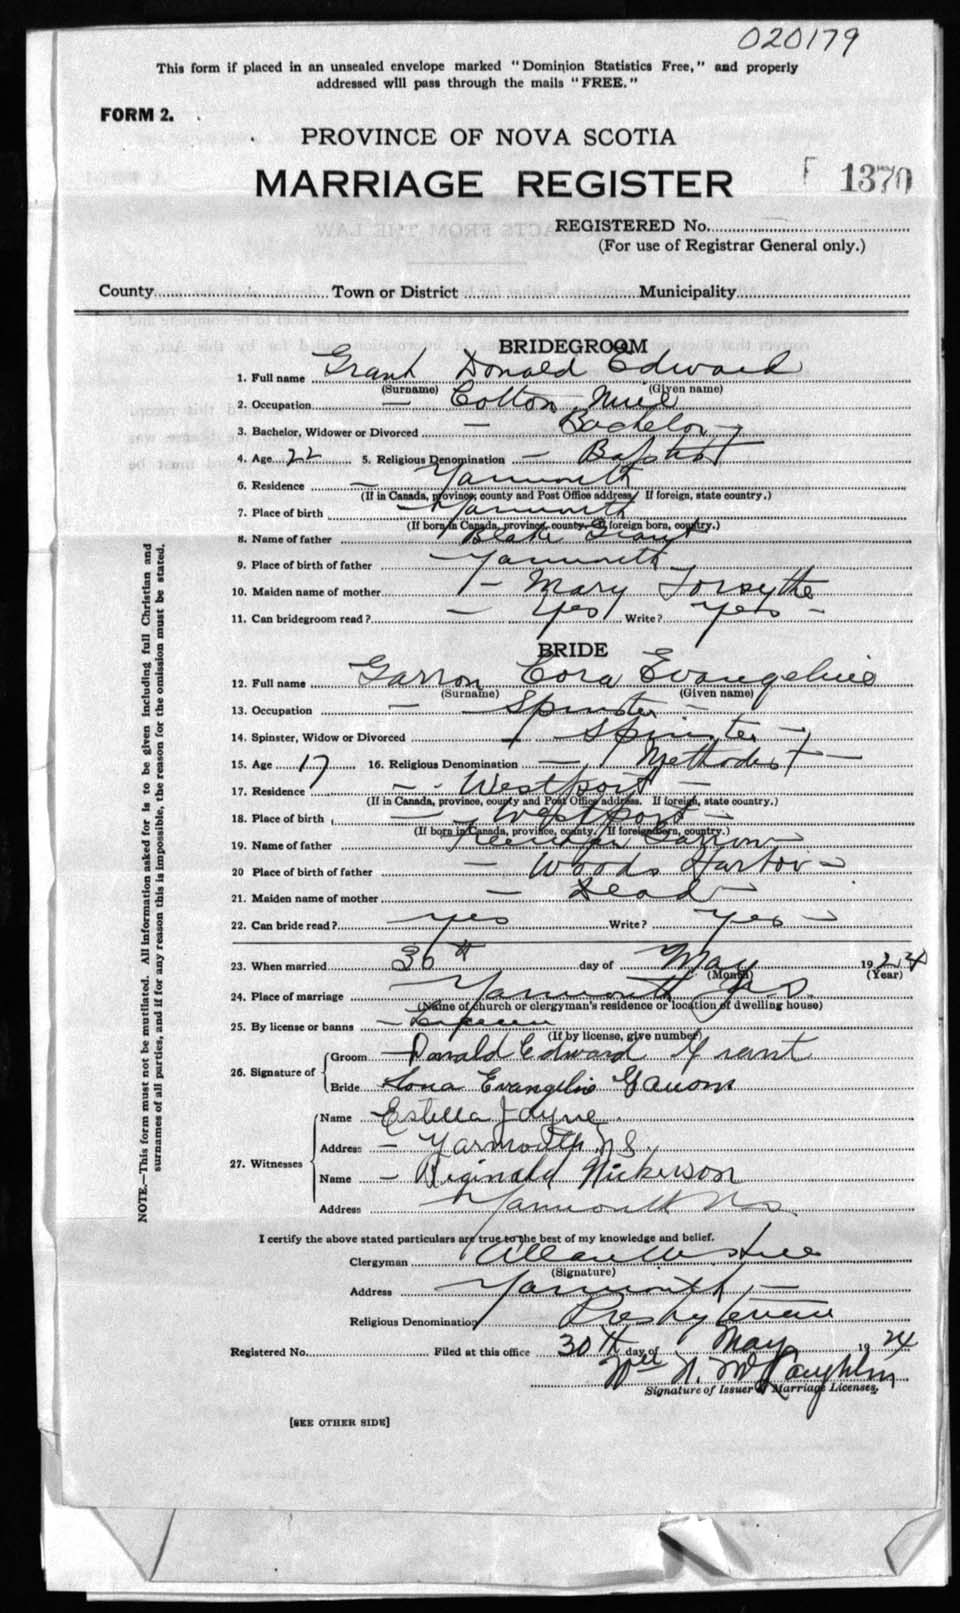 020179
This form if placed in an unsealed envelope marked "Dominion Statistics Free," and properly
addressed will pass through the mails "FREE."
FORM 2.
PROVINCE OF NOVA SCOTIA
MARRIAGE REGISTER
F 1370
REGISTERED No.
(For use of Registrar General only.)
County Town or District Municipality
BRIDEGROOM
1. Full name Grant Donald Edward
(Surname) (Given name)
2. Occupation — Cotton Mill
3. Bachelor, Widower or Divorced — Bachelor —
4. Age 22 5. Religious Denomination — Baptist
6. Residence — Yarmouth
(If in Canada, province, county and Post Office address. If foreign, state country.)
7. Place of birth — Yarmouth
(If born in Canada, province, county. If foreign born, country.)
8. Name of father Blake Grant
9. Place of birth of father Yarmouth
10. Maiden name of mother — Mary Forsythe
11. Can bridegroom read? — Yes Write? Yes —
BRIDE
12. Full name Garron Cora Evangeline
(Surname) (Given name)
13. Occupation — Spinster —
14. Spinster, Widow or Divorced Spinster —
15. Age 17 16. Religious Denomination — Methodist —
17. Residence — Westport —
(If in Canada, province, county and Post Office address. If foreign, state country.)
18. Place of birth — Westport —
(If born in Canada, province, county. If foreign born, country.)
19. Name of father Garron —
20 Place of birth of father — Woods Harbor —
21. Maiden name of mother — Dead —
22. Can bride read? yes Write? yes —
23. When married 30th day of May 1924
(Month) (Year)
24. Place of marriage Yarmouth N S
(Name of church or clergyman's residence or location of dwelling house)
25. By license or banns — License
(If by license, give number)
26. Signature of Groom — Donald Edward Grant
Bride Evangelie
27. Witnesses Name Estella Jayne
Address — Yarmouth, N S,
Name — Reginald Nickerson
Address Yarmouth N S.
I certify the above stated particulars are true to the best of my knowledge and belief.
Clergyman Allan
(Signature)
Address Yarmouth —
Religious Denomination Presbyterian
Registered No. Filed at this office 30th day of May 1924
Wm N. McLaughlin
Signature of Issuer of Marriage Licenses.
[SEE OTHER SIDE]
NOTE.—This form must not be mutilated. All information asked for is to be given including full Christian and
surnames of all parties, and if for any reason this is impossible, the reason for the omission must be stated.